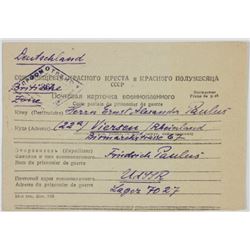 Deutschland
СОЮЗ ОБЩЕСТВ КРАСНОГО КРЕСТА и КРАСНОГО ПОЛУМЕСЯЦА
СССР
British
Zone
Почтовая карточка военнопленного
Carte postale du prisonnier de guerre
Кому (Destinataire) Herrn Ernst Alexander Paulus
Куда (Adresse) (22a) Viersen /Rheinland
Bismarckstraße 67
Отправитель (Expéditeur)
Фамилия и имя военнопленного Friedrich Paulus
Nom du prisonnier de guerre
Почтовый адрес военнопленного UdSSR
Adresse du prisonnier de guerre
Lager 7027